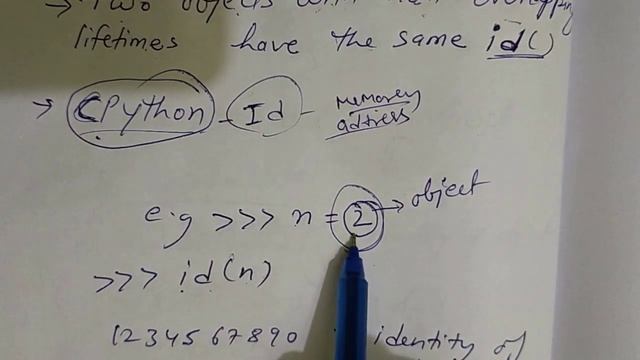 → Two objects with non overlapping
lifetimes have the same id()
→ CPython - Id - memory
address
e.g >>> n = 2 → object
>>> id(n)
1234567890 identity of